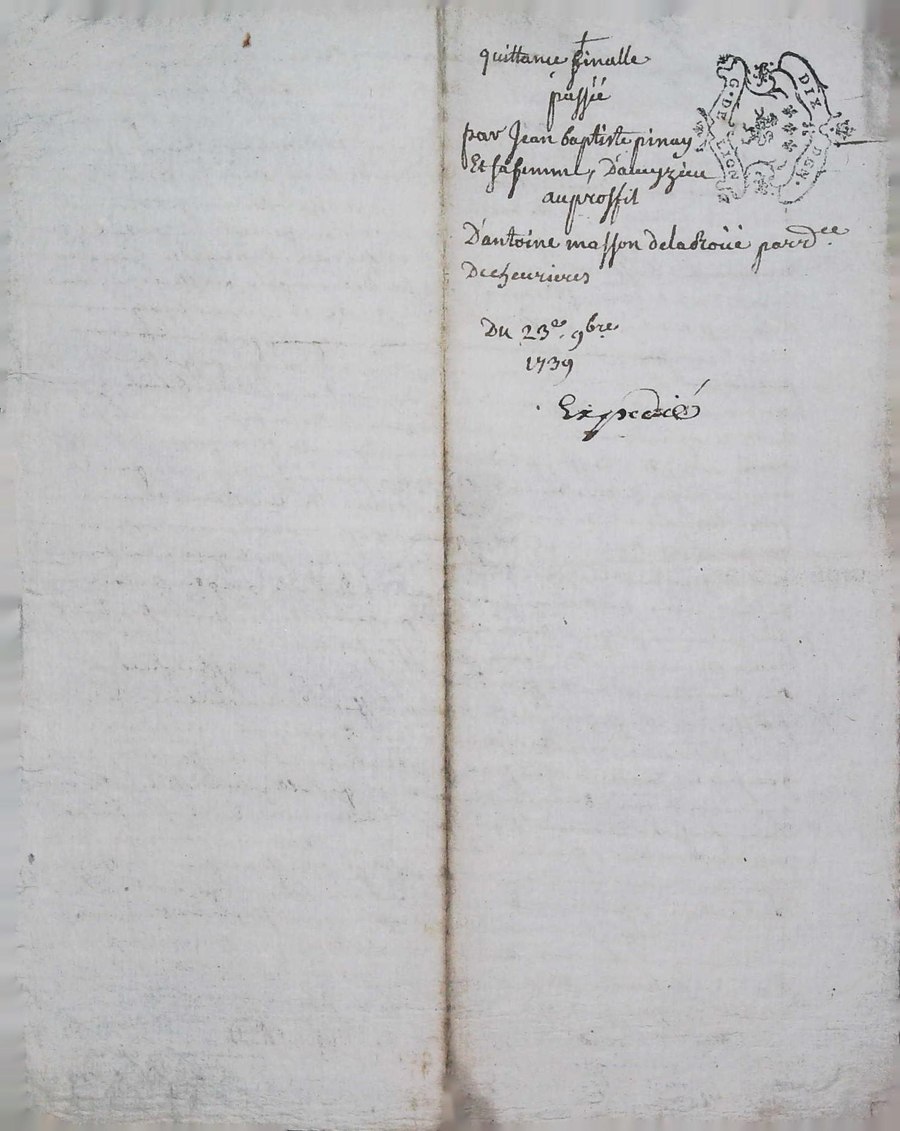 quittance finalle
passée
par Jean baptiste pinay
Et sa femme, D'aveyzieu
au proffit
D'antoine masson de la Roüe parr.ee
De chevrieres
Du 23e. 9bre.
1739
Expedié
G. DE LION
DIX DEN.